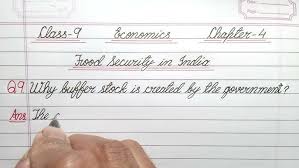 Class-9 Economics Chapter-4
Food Security in India
Q9. Why buffer stock is created by the government?
Ans. The